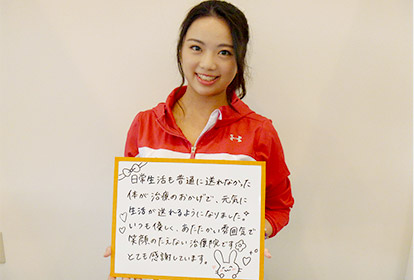 日常生活も普通に送れなかった
体が治療のおかげで、元気に
生活が送れるようになりました。
いつも優しく、あたたかい雰囲気で
笑顔のたえない治療院です
とても感謝しています。